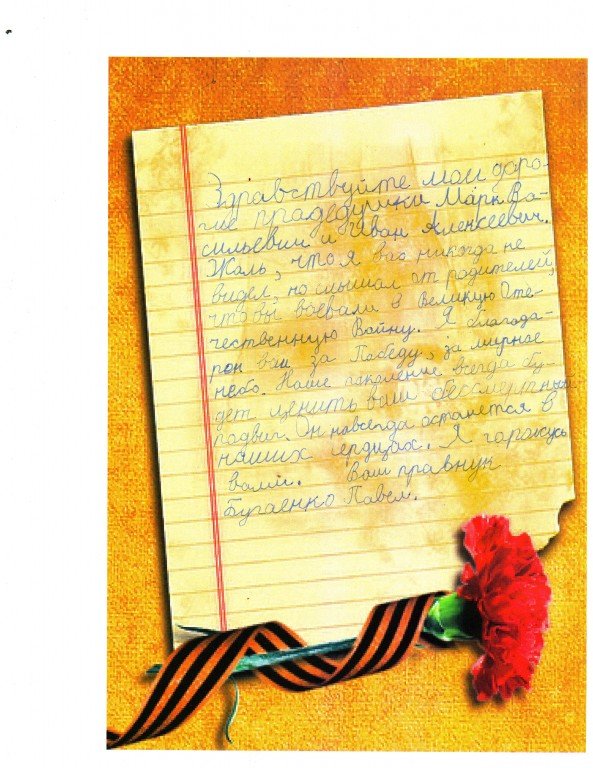 Здравствуйте мои доро-
гие прадедушки Марк Ва-
сильевич и Иван Алексеевич.
Жаль, что я вас никогда не
видел, но слышал от родителей,
что вы воевали в Великую Оте-
чественную Войну. Я благода-
рен вам за Победу, за мирное
небо. Наше поколение всегда бу-
дет ценить ваш бессмертный
подвиг. Он навсегда останется в
наших сердцах. Я горжусь
вами. Ваш правнук
Бугаенко Павел.